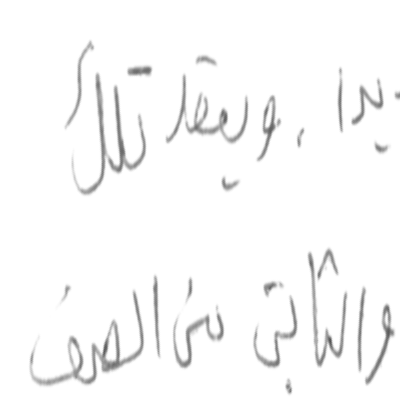 يدا، ويعقد تلك
والثاني من الصف